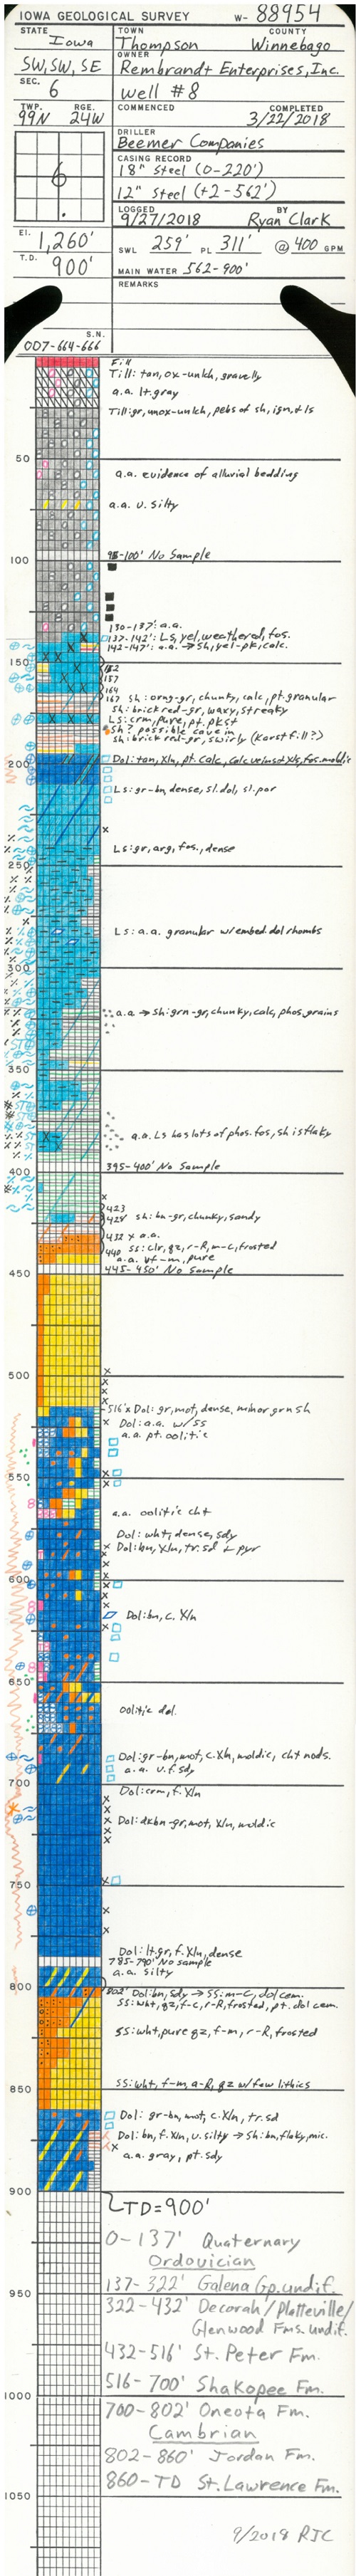 IOWA GEOLOGICAL SURVEY W- 88954
STATE TOWN COUNTY
Iowa Thompson Winnebago
OWNER
SW, SW, SE Rembrandt Enterprises, Inc.
SEC. 6 Well #8
TWP. RGE. COMMENCED COMPLETED
99N 24W 3/22/2018
DRILLER
Beemer Companies
CASING RECORD
18" Steel (0-220')
12" Steel (+2-562')
LOGGED BY
9/27/2018 Ryan Clark
6
El. 1,260' SWL 259' PL 311' @ 400 GPM
T.D. 900' MAIN WATER 562-900'
REMARKS
S.N.
007-664-666
Fill
Till: tan, ox-unlch, gravelly
a.a. lt. gray
Till: gr, unox-unlch, pebs of sh, ign, + ls
50
a.a. evidence of alluvial bedding
a.a. v. silty
100
95-100' No Sample
130-137': a.a.
137-142': Ls, yel, weathered, fos.
142-147': a.a. → Sh, yel-pk, calc.
150
152
157
164
167 sh: orng-gr, chunky, calc, pt. granular
sh: brick red-gr, waxy, streaky
Ls: crm, pure, pt. pkst
sh? possible cave in
sh: brick red-gr, swirly (karst fill?)
200
Dol: tan, xln, pt. calc, calc veins + xls, fos. moldic
Ls: gr-bn, dense, sl. dol, sl. por
Ls: gr, arg, fos., dense
250
Ls: a.a. granular w/ embed dol rhombs
300
a.a. → sh: grn-gr, chunky, calc, phos. grains
350
a.a. Ls has lots of phos. fos, sh is flaky
400
395-400' No Sample
423
428 sh: bn-gr, chunky, sandy
432 x a.a.
440 ss: clr, qz, r-R, m-c, frosted
a.a. vf-m, pure
445-450' No Sample
450
500
516' x Dol: gr, mot, dense, minor grn sh
Dol: a.a. w/ ss
a.a. pt. oolitic
550
a.a. oolitic cht
Dol: wht, dense, sdy
Dol: bn, xln, tr. sd + pyr
600
Dol: bn, c. xln
650
oolitic dol.
Dol: gr-bn, mot, c. xln, moldic, cht nods.
a.a. v. f. sdy
700
Dol: crm, f. xln
Dol: dk bn-gr, mot, xln, moldic
750
Dol: lt. gr, f. xln, dense
785-790' No sample
a.a. silty
800
802' Dol: bn, sdy → ss: m-c, dol cem.
ss: wht, qz, f-c, r-R, frosted, pt. dol cem.
ss: wht, pure qz, f-m, r-R, frosted
850
ss: wht, f-m, a-R, qz w/ few lithics
Dol: gr-bn, mot, c. xln, tr. sd
Dol: bn, f. xln, v. silty → sh: bn, flaky, mic.
a.a. gray, pt. sdy
900
TD=900'
0-137' Quaternary
Ordovician
137-322' Galena Gp. undif.
950
322-432' Decorah/Platteville/
Glenwood Fms. undif.
432-516' St. Peter Fm.
516-700' Shakopee Fm.
1000
700-802' Oneota Fm.
Cambrian
802-860' Jordan Fm.
860-TD St. Lawrence Fm.
1050
9/2018 RJC